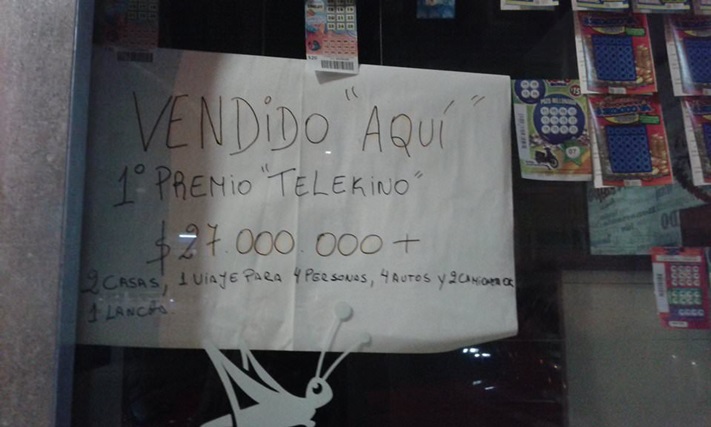 VENDIDO "AQUÍ"
1º PREMIO "TELEKINO"
$ 27.000.000 +
2 CASAS, 1 VIAJE PARA 4 PERSONAS, 4 AUTOS Y 2
1 LANCHA